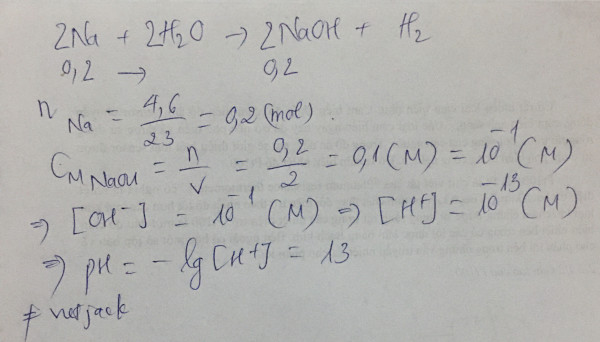 2Na + 2H2O → 2NaOH + H2
0,2 → 0,2
n Na = 4,6/23 = 0,2 (mol).
CM NaOH = n/V = 0,2/2 = 0,1 (M) = 10^-1 (M)
⇒ [OH^-] = 10^-1 (M) ⇒ [H+] = 10^-13 (M)
⇒ pH = -lg[H+] = 13